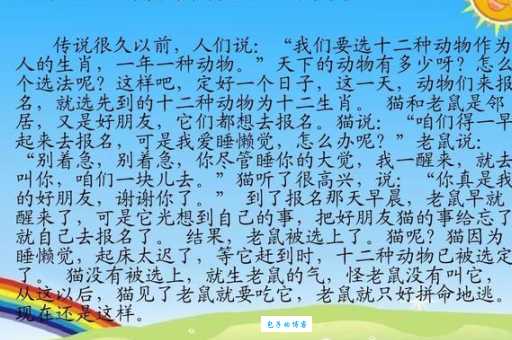 传说很久以前，人们说：“我们要选十二种动物作为
人的生肖，一年一种动物。”天下的动物有多少呀？怎么
个选法呢？这样吧，定好一个日子，这一天，动物们来报
名，就选先到的十二种动物为十二生肖。 猫和老鼠是邻
居，又是好朋友，它们都想去报名。猫说：“咱们得一早
起来去报名，可是我爱睡懒觉，怎么办呢？”老鼠说：
“别着急，别着急，你尽管睡你的大觉，我一醒来，就去
叫你，咱们一块儿去。”猫听了很高兴，说：“你真是我
的好朋友，谢谢你了。” 到了报名那天早晨，老鼠早就
醒来了，可是它光想到自己的事，把好朋友猫的事给忘了
就自己去报名了。 结果，老鼠被选上了。猫呢？猫因为
睡懒觉，起床太迟了，等它赶到时，十二种动物已被选定
了。 猫没有被选上，就生老鼠的气，怪老鼠没有叫它，
从这以后，猫见了老鼠就要吃它，老鼠就只好拼命地逃。
现在还是这样。
包子的博客